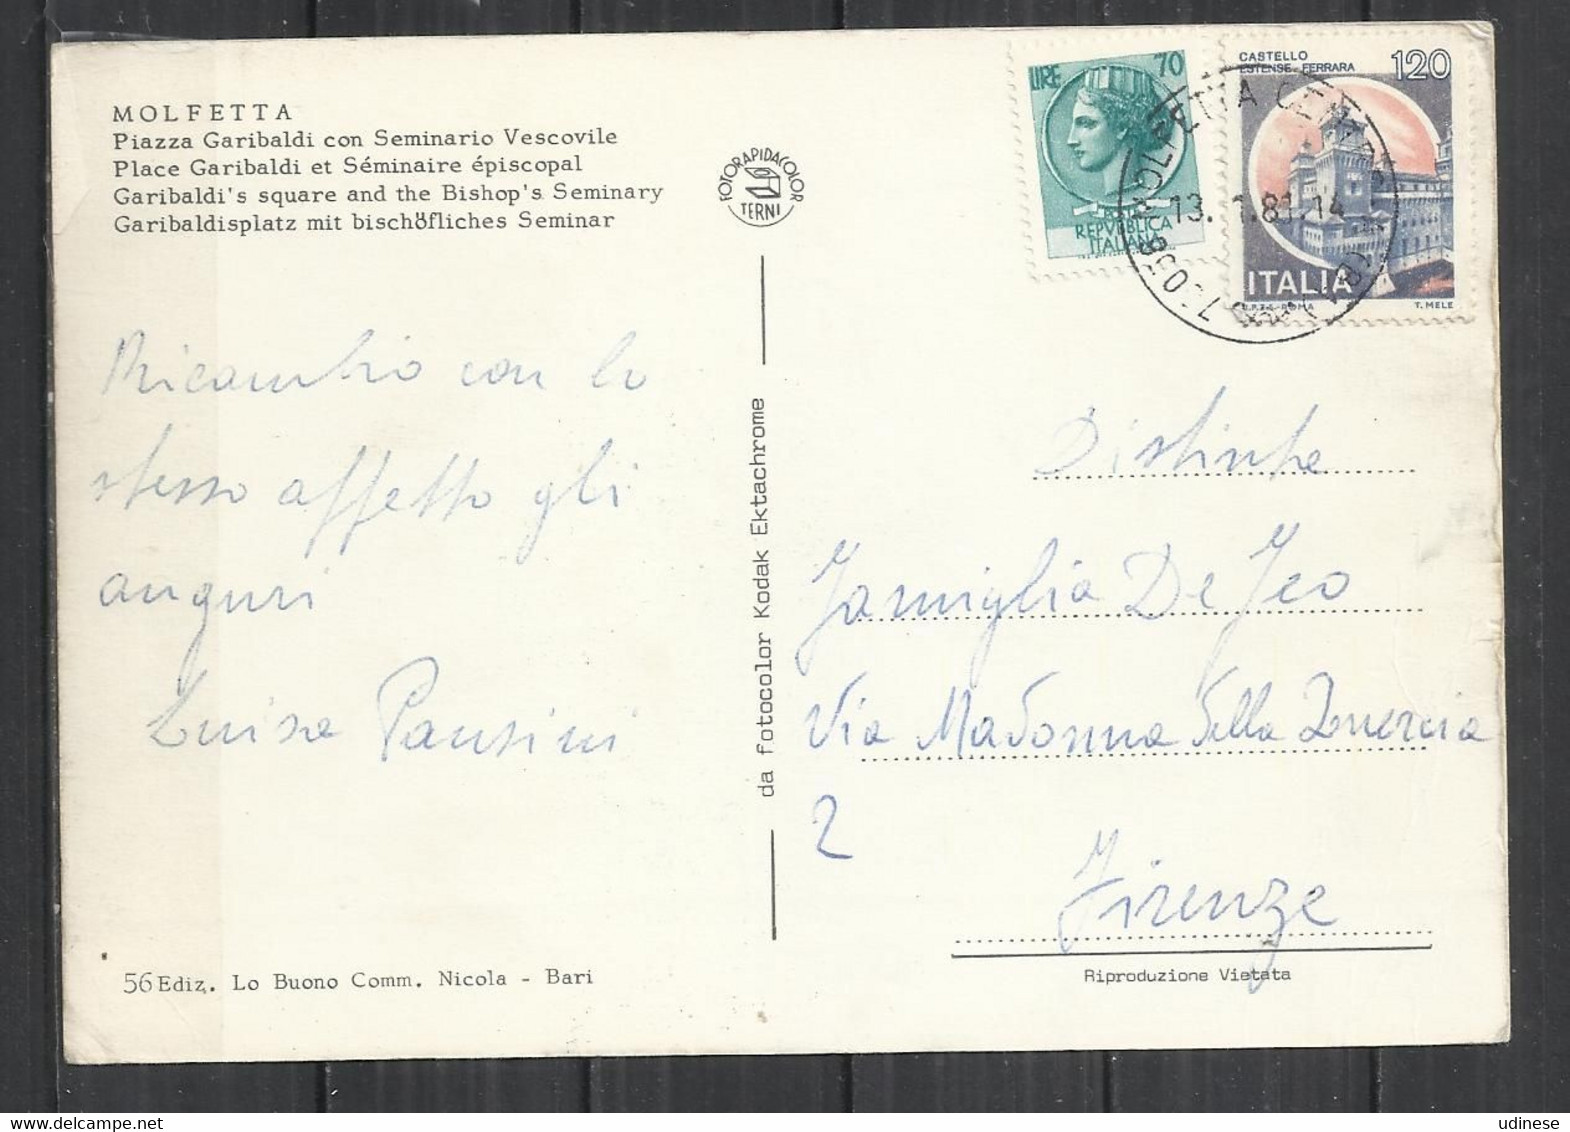 MOLFETTA
Piazza Garibaldi con Seminario Vescovile
Place Garibaldi et Séminaire épiscopal
Garibaldi's square and the Bishop's Seminary
Garibaldisplatz mit bischöfliches Seminar
FOTORAPIDACOLOR
TERNI
LIRE 70
POSTE
REPVBBLICA
ITALIANA
CASTELLO
ESTENSE-FERRARA
120
ITALIA
I.P.Z.S.-ROMA T. MELE
MOLFETTA CENTRO
13. 1.81-14
Ricambio con lo
stesso affetto gli
auguri
Luisa Pansini
da fotocolor Kodak Ektachrome
Distinta
Famiglia De Feo
Via Madonna della
2
Firenze
56 Ediz. Lo Buono Comm. Nicola - Bari
Riproduzione Vietata
udinese